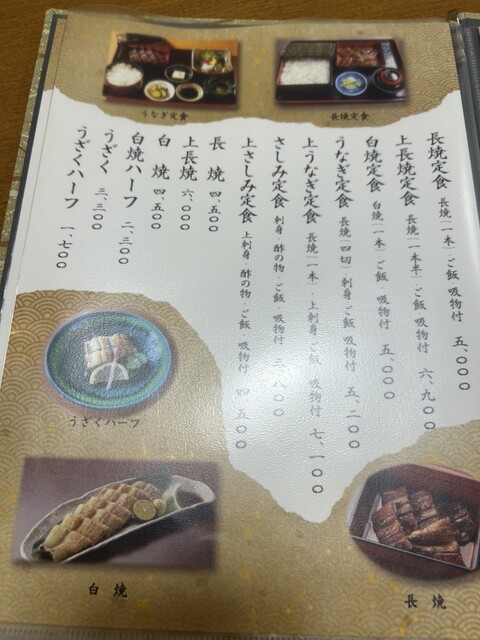 うなぎ定食
長焼定食
長焼定食 長焼(一本)ご飯 吸物付 五、〇〇〇
上長焼定食 長焼(一本半)ご飯 吸物付 六、九〇〇
白焼定食 白焼(一本)ご飯 吸物付 五、〇〇〇
うなぎ定食 長焼(四切)・刺身・ご飯 吸物付 五、二〇〇
上うなぎ定食 長焼(一本)・上刺身・ご飯 吸物付 七、一〇〇
さしみ定食 刺身・酢の物・ご飯 吸物付 三、八〇〇
上さしみ定食 上刺身・酢の物・ご飯 吸物付 四、五〇〇
長焼 四、五〇〇
上長焼 六、〇〇〇
白焼 四、五〇〇
白焼ハーフ 二、三〇〇
うざく 三、三〇〇
うざくハーフ 一、七〇〇
うざくハーフ
白焼
長焼